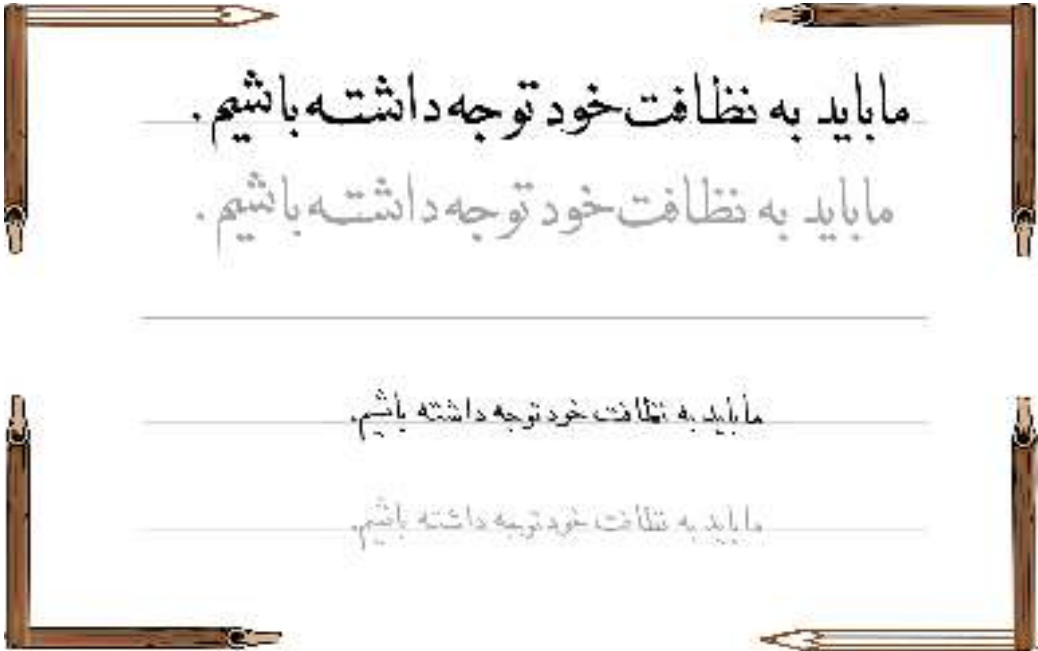 ما باید به نظافت خود توجه داشته باشیم.
ما باید به نظافت خود توجه داشته باشیم.
ما باید به نظافت خود توجه داشته باشیم.
ما باید به نظافت خود توجه داشته باشیم.